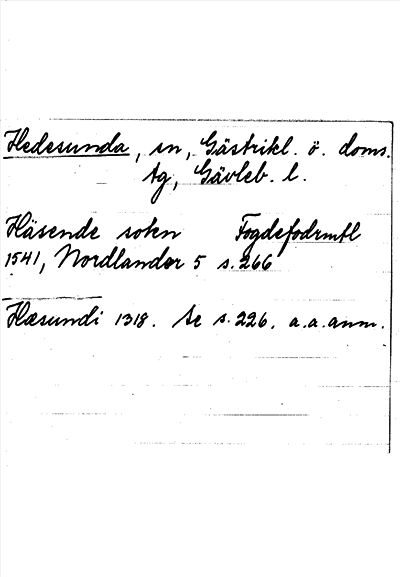 Hedesunda, sn, Gästrikl. ö. doms.
tg, Gävleb. l.
Häsende soken Fogdefodrmtl
1541, Nordlander 5 s. 266
Hæsundi 1318. Se s. 226, a.a. anm.